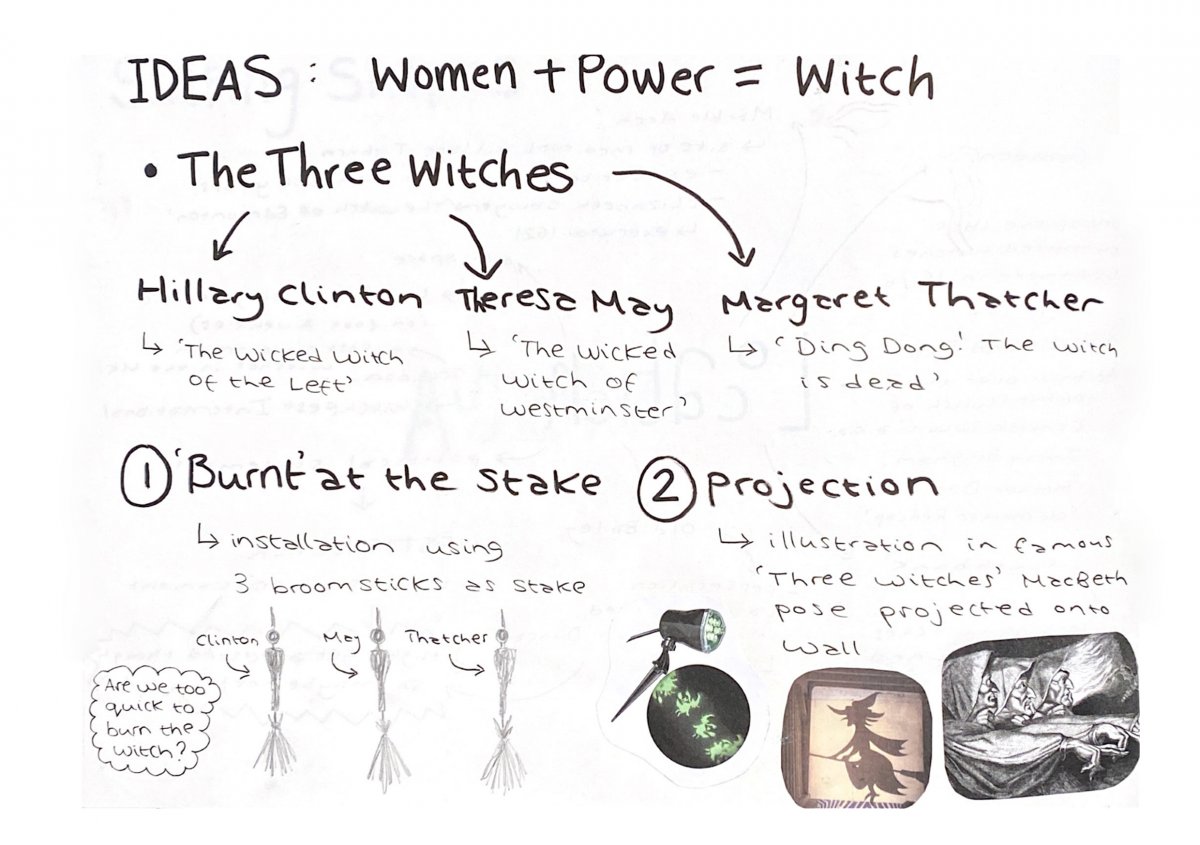 IDEAS : Women + Power = Witch
• The Three Witches
Hillary Clinton
↳ 'The Wicked Witch
of the Left'
Theresa May
↳ 'The Wicked
Witch of
Westminster'
Margaret Thatcher
↳ 'Ding Dong! The Witch
is dead'
① 'Burnt' at the Stake
↳ installation using
3 broomsticks as stake
Clinton
May
Thatcher
Are we too
quick to
burn the
witch?
② Projection
↳ illustration in famous
'Three Witches' MacBeth
pose projected onto
wall